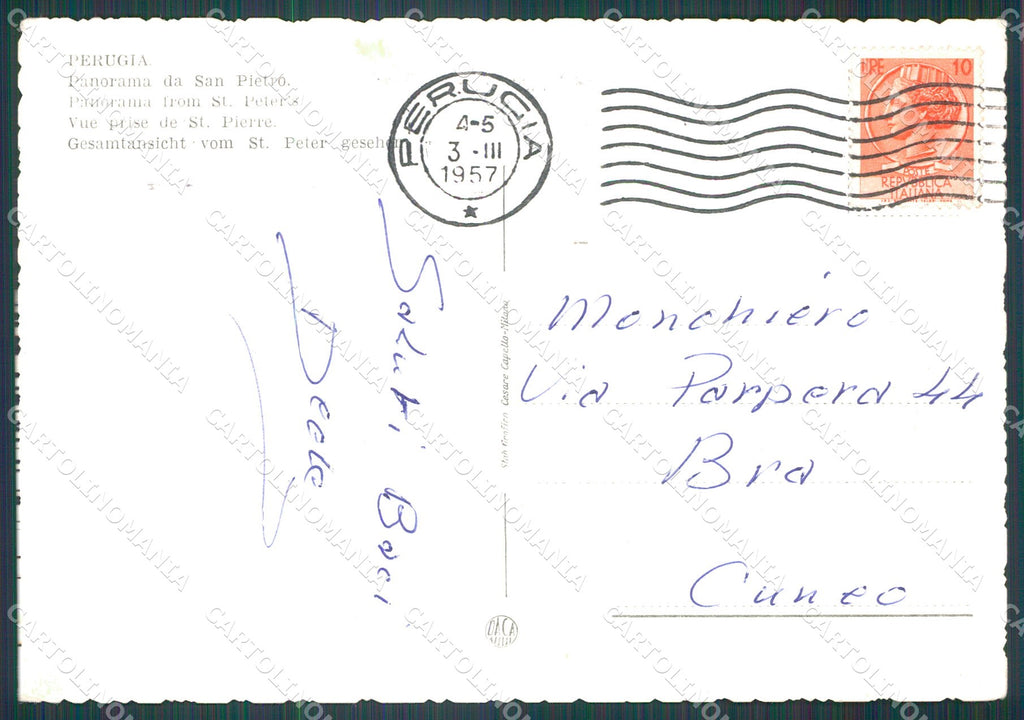 PERUGIA
Panorama da San Pietro.
Panorama from St. Peter's
Vue prise de St. Pierre.
Gesamtansicht vom St. Peter gesehen
PERUGIA
4-5
3 - III
1957
LIRE 10
POSTE
REPUBBLICA
ITALIANA
Saluti Baci
Monchiero
Via Parpera 44
Bra
Cuneo
Cesare Capello - Milano
DACA
CARTOLINOMANIA